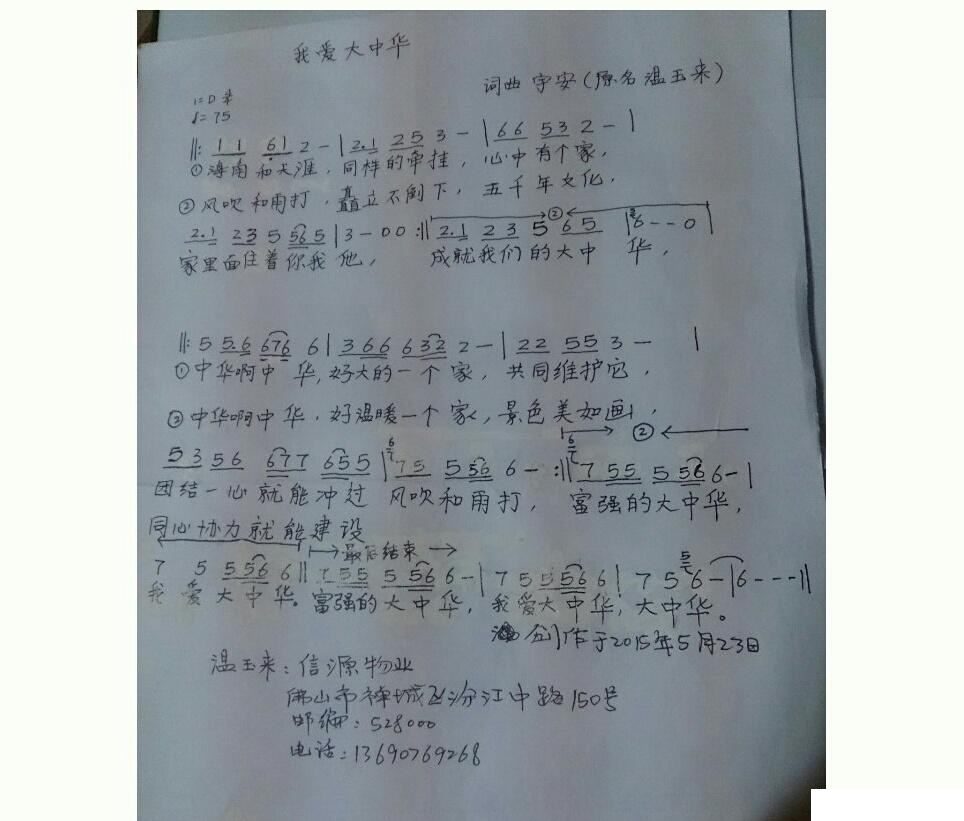 我爱大中华
词曲 宇安(原名温玉来)
1=D
♩=75
‖: 1 1 6 1 2 - | 2.1 2 5 3 - | 6 6 5 3 2 - |
①海南和天涯,同样的牵挂,心中有个家,
②风吹和雨打,矗立不倒下,五千年文化,
2.1 2 3 5 5 6 5 | 3 - 0 0 :‖ 2.1 2 3 5 6 5 | 6 - - 0 |
家里面住着你我他, 成就我们的大中华,
‖: 5 5.6 6 7 6 6 | 3 6 6 6 3 2 2 - | 2 2 5 5 3 - |
①中华啊中华,好大的一个家,共同维护它,
②中华啊中华,好温暖一个家,景色美如画,
②
5 3 5 6 6 7 7 6 5 5 | 7 5 5 5 6 6 - :‖ 7 5 5 5 5 6 6 - |
团结一心就能冲过 风吹和雨打, 富强的大中华,
同心协力就能建设
最后结束
7 5 5 5 6 6 ‖ 7 5 5 5 5 6 6 - | 7 5 5 5 6 6 | 7 5 6 - | 6 - - - ‖
我爱大中华。富强的大中华,我爱大中华,大中华。
创作于2015年5月23日
温玉来:信源物业
佛山市禅城区汾江中路150号
邮编:528000
电话:13690769268